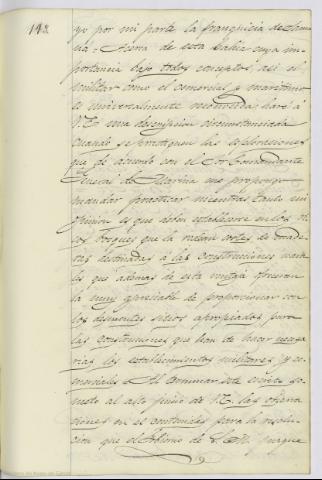 142
yo por mi parte la franquicia de Sama
ná = Acerca de esta bahia cuya im
portancia bajo todos conceptos asi el
militar como el comercial y maritimo
es universalmente reconocida haré á
V.E. una descripcion circunstanciada
cuando se practiquen las esploraciones
que de acuerdo con el Sor Comandante
General de Marina me propongo
mandar practicar mientras tanto mi
opinion es que deben establecerse en los ri
cos bosques que la rodean cortes de made
ras destinadas á las construcciones nava
les que ademas de esta ventaja ofrecen
la muy apreciable de proporcionar con
los desmontes sitios apropiados para
las construcciones que han de hacer necesa
rias los establecimientos militares y co
merciales Al terminar este escrito so
meto al alto juicio de V.E. las observa
ciones en el contenidas para la resolu
cion que el Gobierno de S. M. juzgue